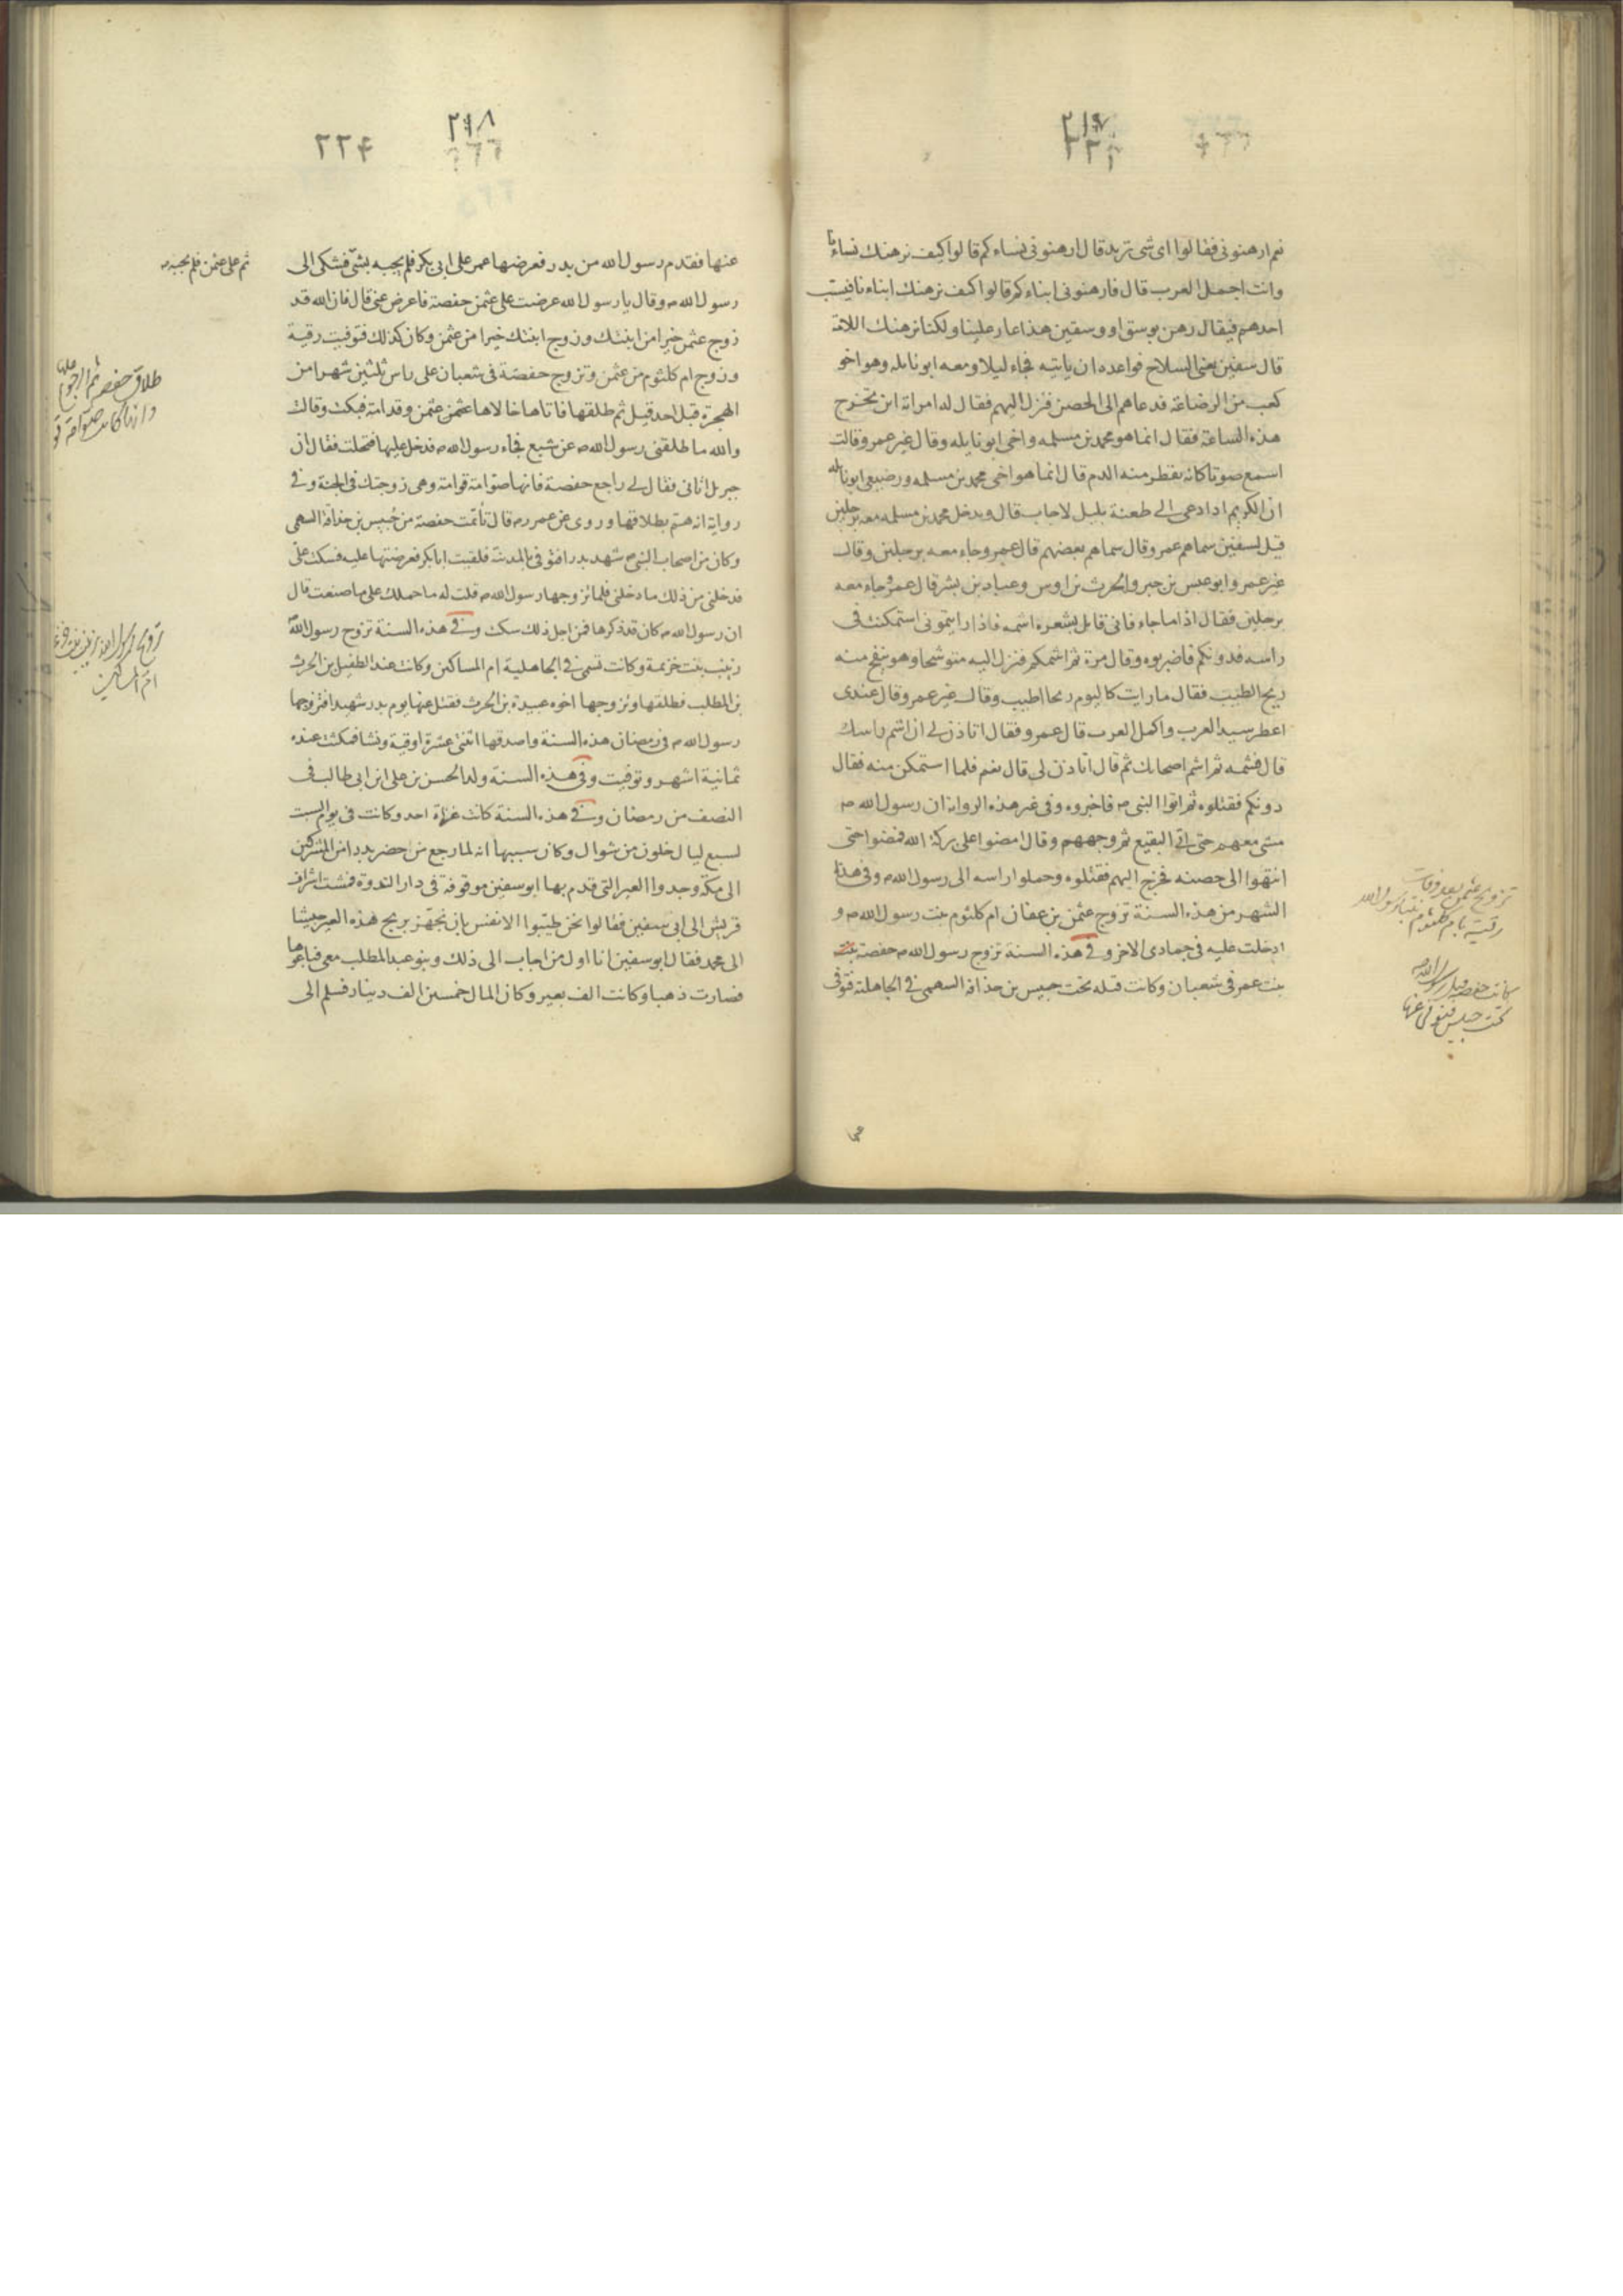 ٢١٧
نعم ارهنونى فقالوا اى شى تريد قال ارهنونى نساءكم قالوا كيف نرهنك نساءنا
وانت اجمل العرب قال فارهنونى ابناءكم قالوا كيف نرهنك ابناءنا فيسب
احدهم فيقال رهن بوسق او وسقين هذا عار علينا ولكنا نرهنك اللامة
قال سفين يعنى السلاح فواعده ان ياتيه فجاء ليلا ومعه ابو نايله وهو اخو
كعب من الرضاعة فدعاهم الى الحصن فنزل اليهم فقال له امراته اين تخرج
هذه الساعة فقال انما هو محمد بن مسلمه واخى ابو نايله وقال غير عمرو قالت
اسمع صوتا كانه يقطر منه الدم قال انما هو اخى محمد بن مسلمه ورضيعى ابو نايله
ان الكريم اذا دعى الى طعنة بليل لاجاب قال ويدخل محمد بن مسلمه معه برجلين
قيل لسفين سماهم عمرو قال سماهم بعضهم قال عمرو جاء معه برجلين وقال
غير عمرو ابو عبس بن جبر والحرث بن اوس وعباد بن بشر قال عمرو جاء معه
برجلين فقال اذا ما جاء فانى قابل بشعره اشمه فاذا رايتمونى استمكنت فى
راسه فدونكم فاضربوه وقال مرة ثم اشمكم فنزل اليه متوشحا وهو ينفح منه
ريح الطيب فقال ما رايت كاليوم ريحا اطيب وقال غير عمرو قال عندى
اعطر سيد العرب واكمل العرب قال عمرو فقال اتاذن لى ان اشم راسك
قال فشمه ثم اشم اصحابك ثم قال اتاذن لى قال نعم فلما استمكن منه فقال
دونكم فقتلوه ثم اتوا النبى م فاخبروه وفى غير هذه الرواية ان رسول الله م
مشى معهم حتى اتى البقيع ثم وجههم وقال امضوا على بركة الله فمضوا حتى
انتهوا الى حصنه فخرج اليهم فقتلوه وحملوا راسه الى رسول الله م وفى هذا
الشهر من هذه السنة تزوج عثمن بن عفان ام كلثوم بنت رسول الله م و
ادخلت عليه فى جمادى الاخر وفى هذه السنة تزوج رسول الله م حفصة بنت
بنت عمر فى شعبان وكانت قبله تحت حبيس بن حذافة السهمى فى الجاهلية فتوفى
تزوج عثمن بعد وفات
رقية بام كلثوم بنت رسول الله
كانت حفصة قبل رسول الله م
تحت حبيس فتوفى عنها
٢١٨
٢٢۴
عنها فقدم رسول الله من بدر فعرضها عمر على ابى بكر فلم يجبه بشى فشكى الى
ثم على عثمن فلم يجبه م
رسول الله م وقال يا رسول الله عرضت على عثمن حفصة فاعرض عنى قال فان الله قد
زوج عثمن خيرا من ابنتك وزوج ابنتك خيرا من عثمن وكان كذلك فتوفيت رقية
وزوج ام كلثوم من عثمن وتزوج حفصة فى شعبان على راس ثلثين شهرا من
الهجرة قبل احد قيل ثم طلقها فاتاها خالاها عثمن عثمن وقدامة فبكت وقالت
والله ما طلقنى رسول الله م عن شبع فجاء رسول الله م فدخل عليها فتجلت فقال ان
جبريل اتانى فقال لى راجع حفصة فانها صوامة قوامة وهى زوجتك فى الجنة وفى
رواية انه هتم بطلاقها وروى عن عمر رم قال تايمت حفصة من حبيس بن حذافة السهمى
وكان من اصحاب النبى م شهد بدرا فتوفى بالمدينة فلقيت ابا بكر فعرضتها عليه فسكت عنى
فدخلنى من ذلك ما دخلنى فلما تزوجها رسول الله م قلت له ما حملك على ما صنعت قال
ان رسول الله م كان قد ذكرها فمن اجل ذلك سكت وفى هذه السنة تزوج رسول الله م
زينب بنت خزيمة وكانت تسمى فى الجاهلية ام المساكين وكانت عند الطفيل بن الحرث
بن المطلب فطلقها وتزوجها اخوه عبيدة بن الحرث فقتل عنها يوم بدر شهيدا فتزوجها
رسول الله م فى رمضان هذه السنة واصدقها اثنتى عشرة اوقية ونشا فمكثت عنده
ثمانية اشهر وتوفيت وفى هذه السنة ولد الحسن بن على ابن ابى طالب فى
النصف من رمضان وفى هذه السنة كانت غزاة احد وكانت فى يوم السبت
لسبع ليال خلون من شوال وكان سببها انه لما رجع من حضر بدرا من المشركين
الى مكة وجدوا العير التى قدم بها ابو سفين موقوفة فى دار الندوة فمشت اشراف
قريش الى ابى سفين فقالوا نحن طيبوا الانفس بان تجهز بربح هذه العير جيشا
الى محمد فقال ابو سفين انا اول من اجاب الى ذلك وبنو عبد المطلب معى فباعوها
فصارت ذهبا وكانت الف بعير وكان المال خمسين الف دينار فسلم الى
طلاق حفصه ثم الرجوع عليها
وانها كانت صوامة
تزوج رسول الله زينب بنت
ام المساكين